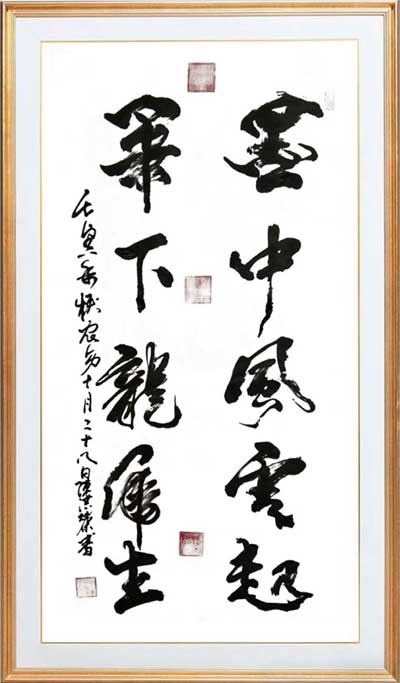 墨中風雲起
筆下龍虎生
壬寅年 農曆十月二十八日 書